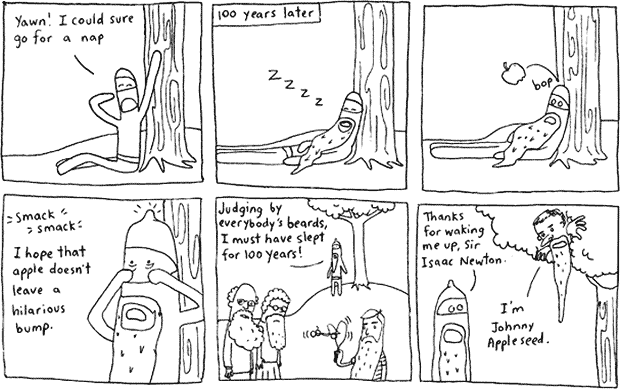 Yawn! I could sure
go for a nap
100 years later
Z Z Z Z
bop
Smack
smack
I hope that
apple doesn't
leave a
hilarious
bump.
Judging by
everybody's beards,
I must have slept
for 100 years!
Thanks
for waking
me up, Sir
Isaac Newton.
I'm
Johnny
Appleseed.